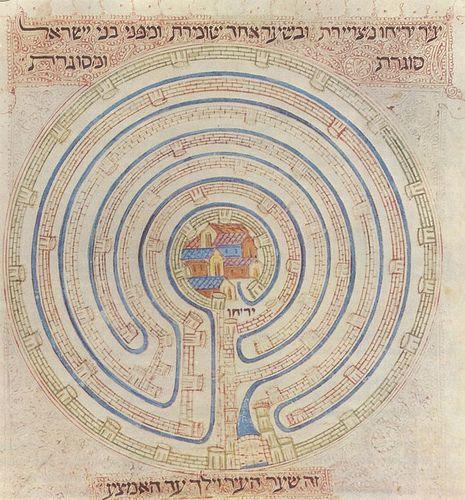 עיר יריחו מצויירת אחר שומירת ומפני בני ישראל
סוגרת ומסוגרת
יריחו
זה שער העיר וילך עד האמצע